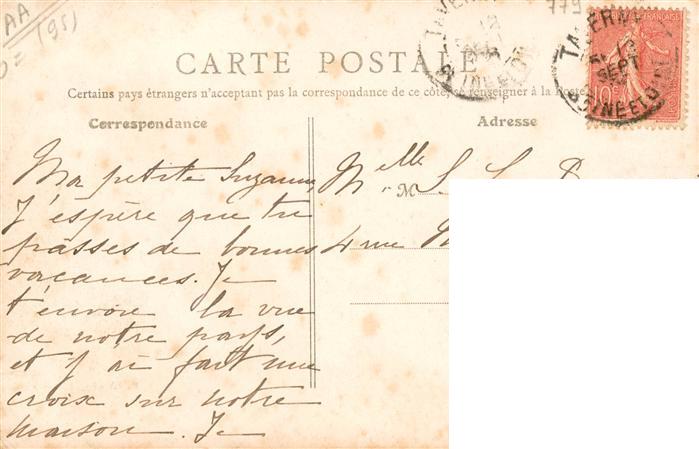 AA
(95)
779
CARTE POSTALE
Certains pays étrangers n'acceptant pas la correspondance de ce côté, se renseigner à la Poste
Correspondance
Ma petite Suzanne,
J'espère que tu
passes de bonnes
vacances. Je
t'envoie la vue
de notre pays,
et j'ai fait une
croix sur notre
maison. Je
Adresse
M elle S. S.
4 rue
TAVERNY
SEINE-ET-OISE
TAVERNY
12
SEPT
SEINE-ET-OISE
FRANÇAISE
10c